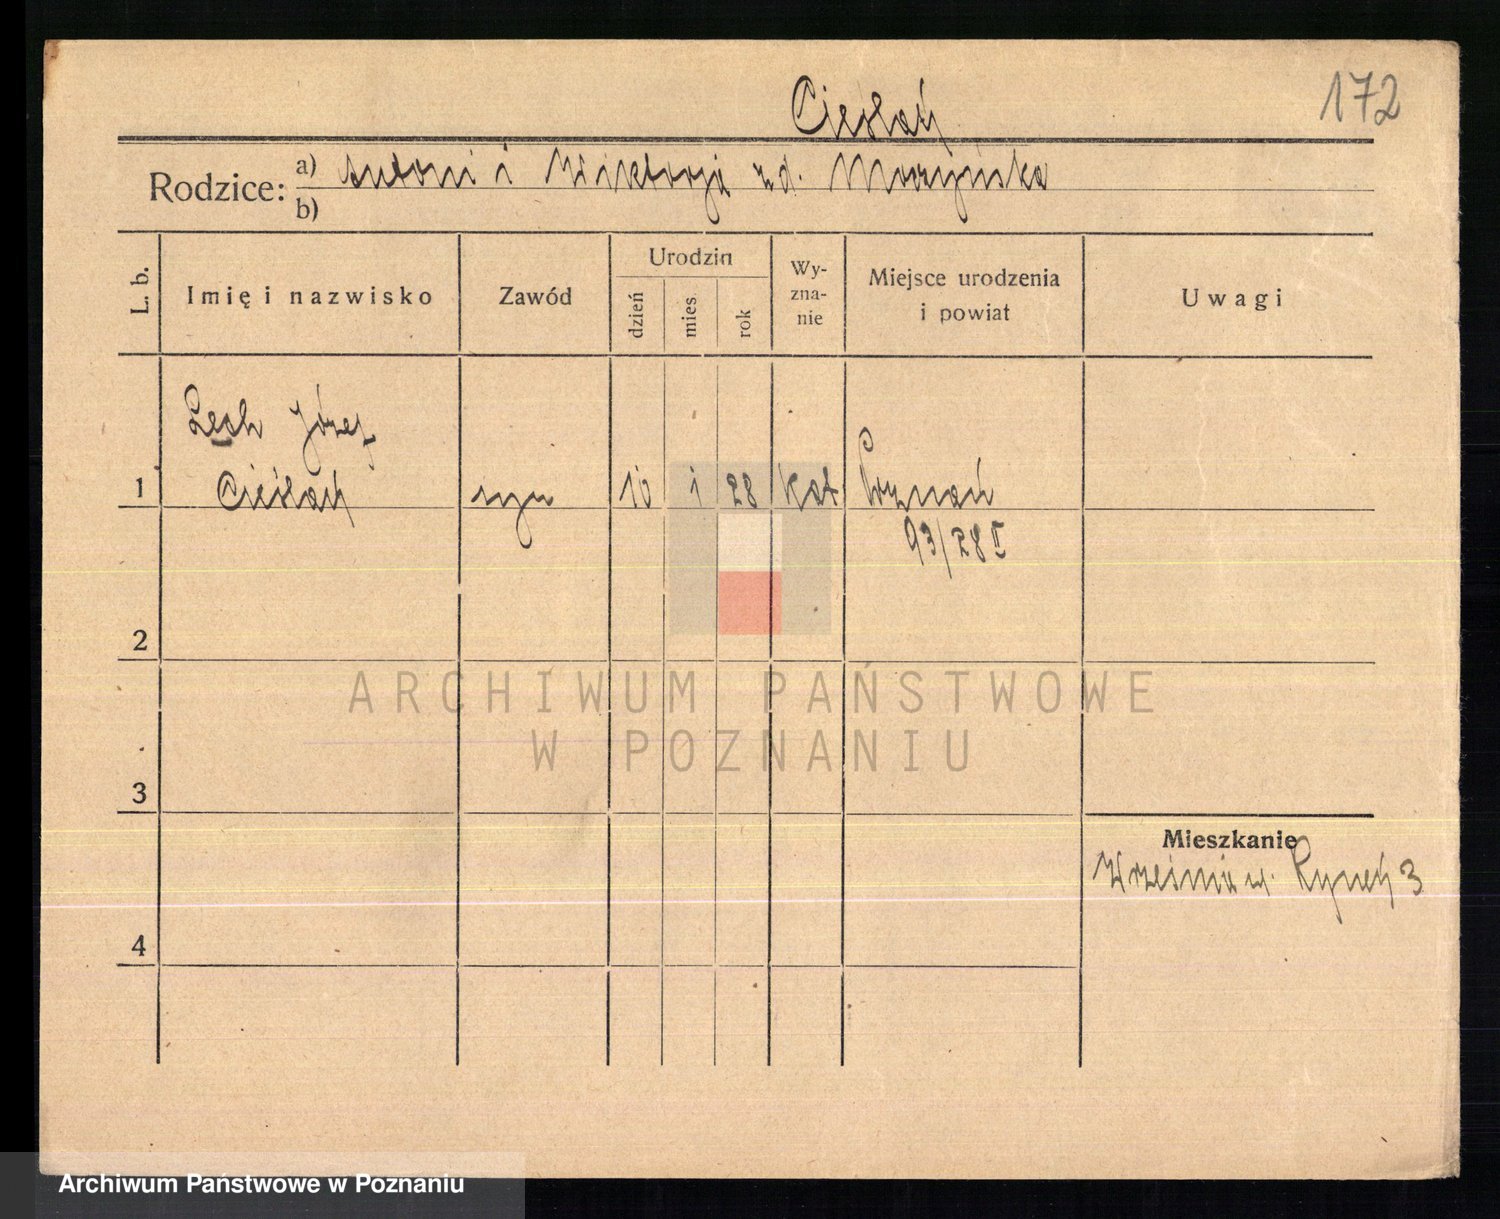 172
Cieślak
Rodzice: a) Antoni i Wiktorja zd. Morzyńska
b)
L. b. Imię i nazwisko Zawód Urodzin dzień mies. rok Wy-zna-nie Miejsce urodzenia i powiat Uwagi
Lech Józef
1 Cieślak syn 10 1 28 kat Poznań
93/28 II
2
ARCHIWUM PAŃSTWOWE
W POZNANIU
3
Mieszkanie
Września Rynek 3
4
Archiwum Państwowe w Poznaniu